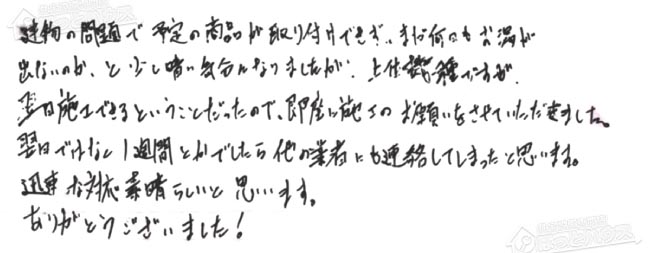 建物の問題で予定の商品が取り付けできず、まだ何にもお湯が
出ないのか、と少し暗い気分になりましたが、上位機種ですが、
翌日施工できるということだったので、即座に施工のお願いをさせていただきました。
翌日でなく1週間とかでしたら他の業者にも連絡してしまったと思います。
迅速な対応素晴らしいと思います。
ありがとうございました!